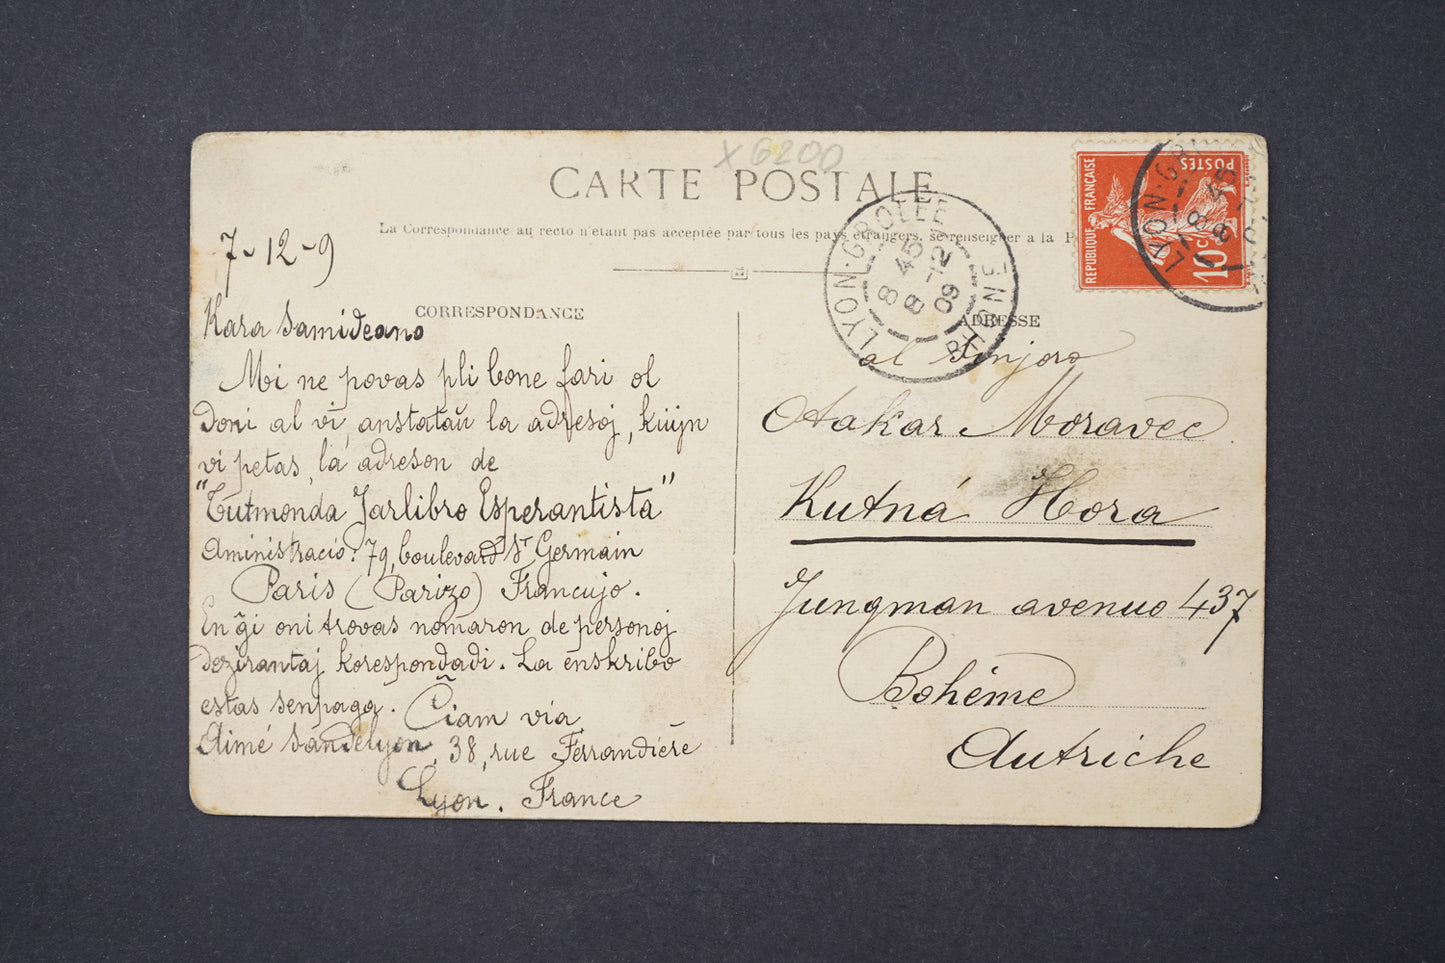 X 6200
CARTE POSTALE
La Correspondance au recto n'étant pas acceptée par tous les pays étrangers, se renseigner a la P
7-12-9
CORRESPONDANCE
Kara Samideano
Mi ne povas pli bone fari ol
doni al vi, anstataŭ la adresoj, kiujn
vi petas, la adreson de
"Tutmonda Jarlibro Esperantista"
Aministracio: 79, boulevard St Germain
Paris (Parizo) Francujo.
En ĝi oni trovas nomaron de personoj
dezirantaj korespondadi. La enskribo
estas senpaga. Ĉiam via
Aimé Sandelyon, 38, rue Ferrandière
Lyon. France
ADRESSE
al Sinjoro
Otakar Moravec
Kutná Hora
Jungman avenuo 437
Bohême
Autriche
LYON-GROLÉE
8 45
8 -12
09
RHONE
REPUBLIQUE FRANÇAISE
POSTES
10 c
LYON-GR
8 45
8